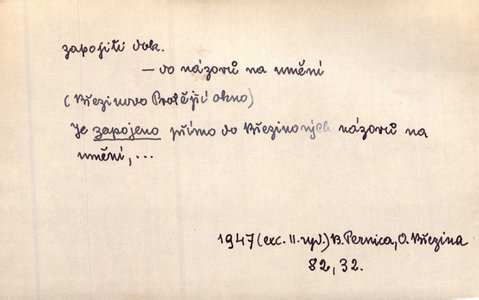 zapojiti dok.
— do názorů na umění
(Březinovo Protější okno)
Je zapojeno přímo do Březinových názorů na
umění,...
1947 (exc. II. vyd.) B. Pernica, O. Březina
82, 32.